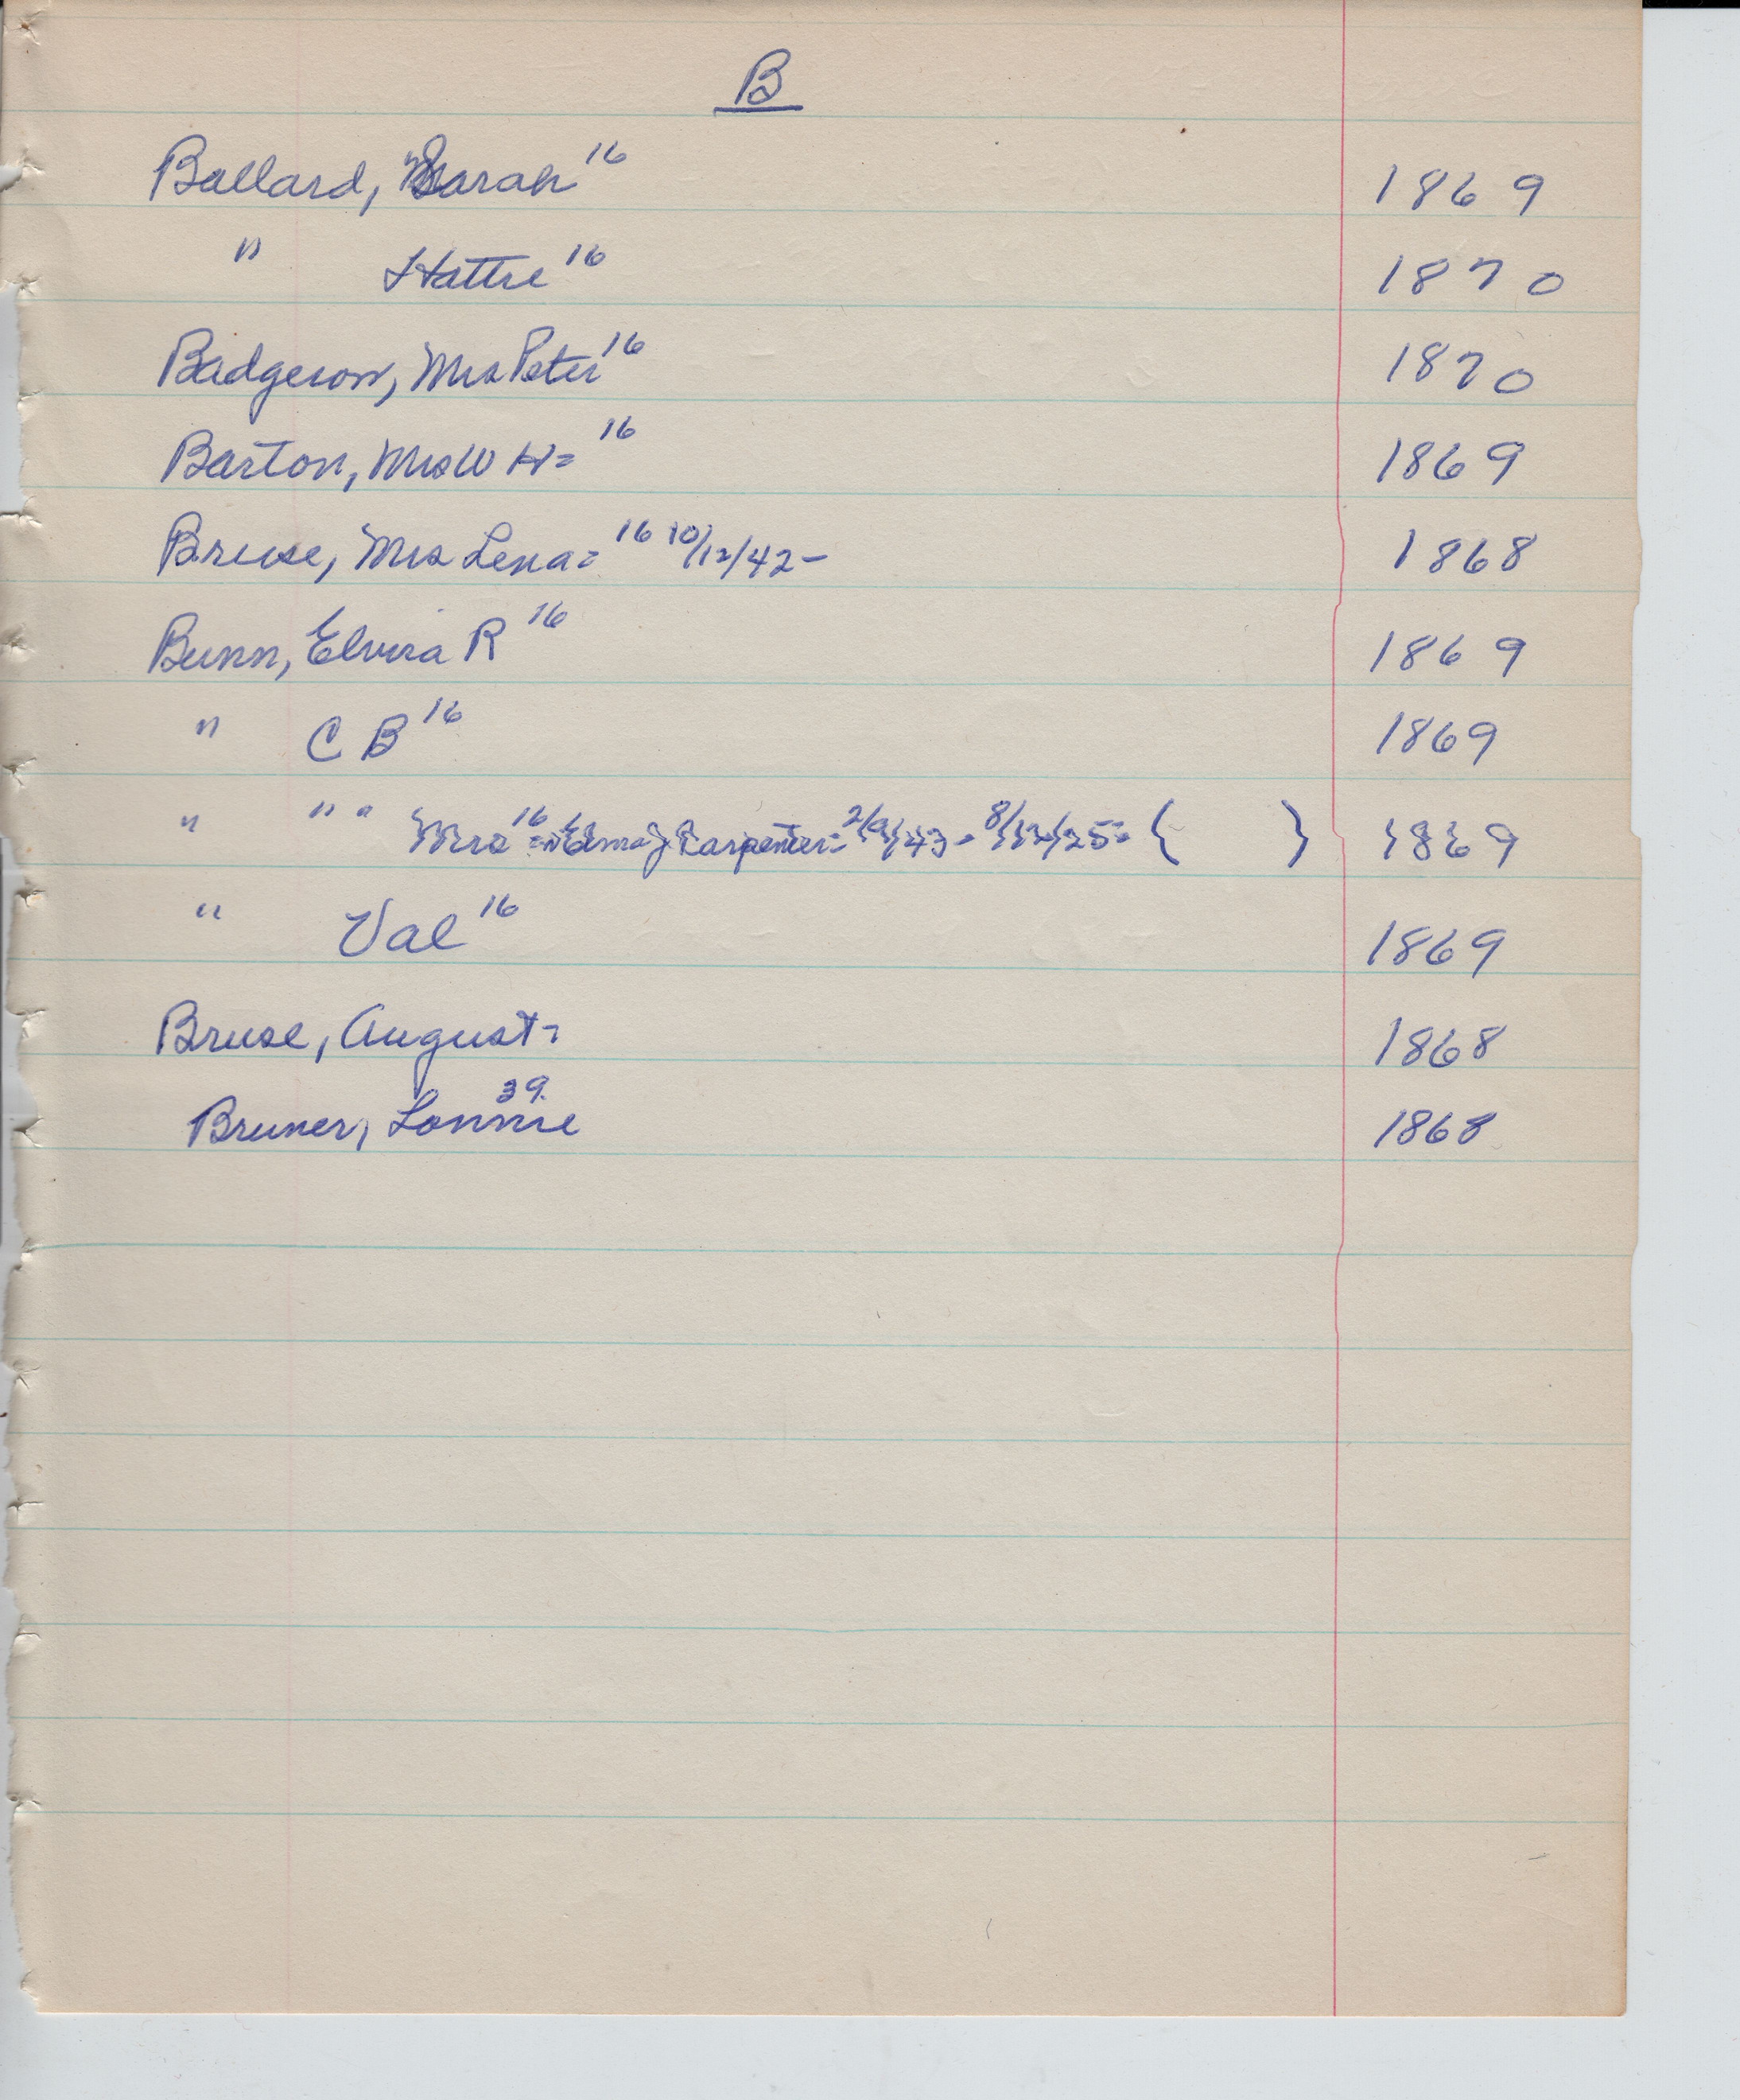 B
Ballard, Sarah 16 1869
" Hattie 16 1870
Badgerow, Mrs Peter 16 1870
Barton, Mrs W H= 16 1869
Bruse, Mrs Lena= 16 10/12/42- 1868
Bunn, Elvira R 16 1869
" C B 16 1869
" " " Mrs 16 = Elma J Carpenter= 2/9/43- 8/12/25= { } 1869
" Val 16 1869
Bruse, August- 1868
Bruner, Lonnie 39. 1868